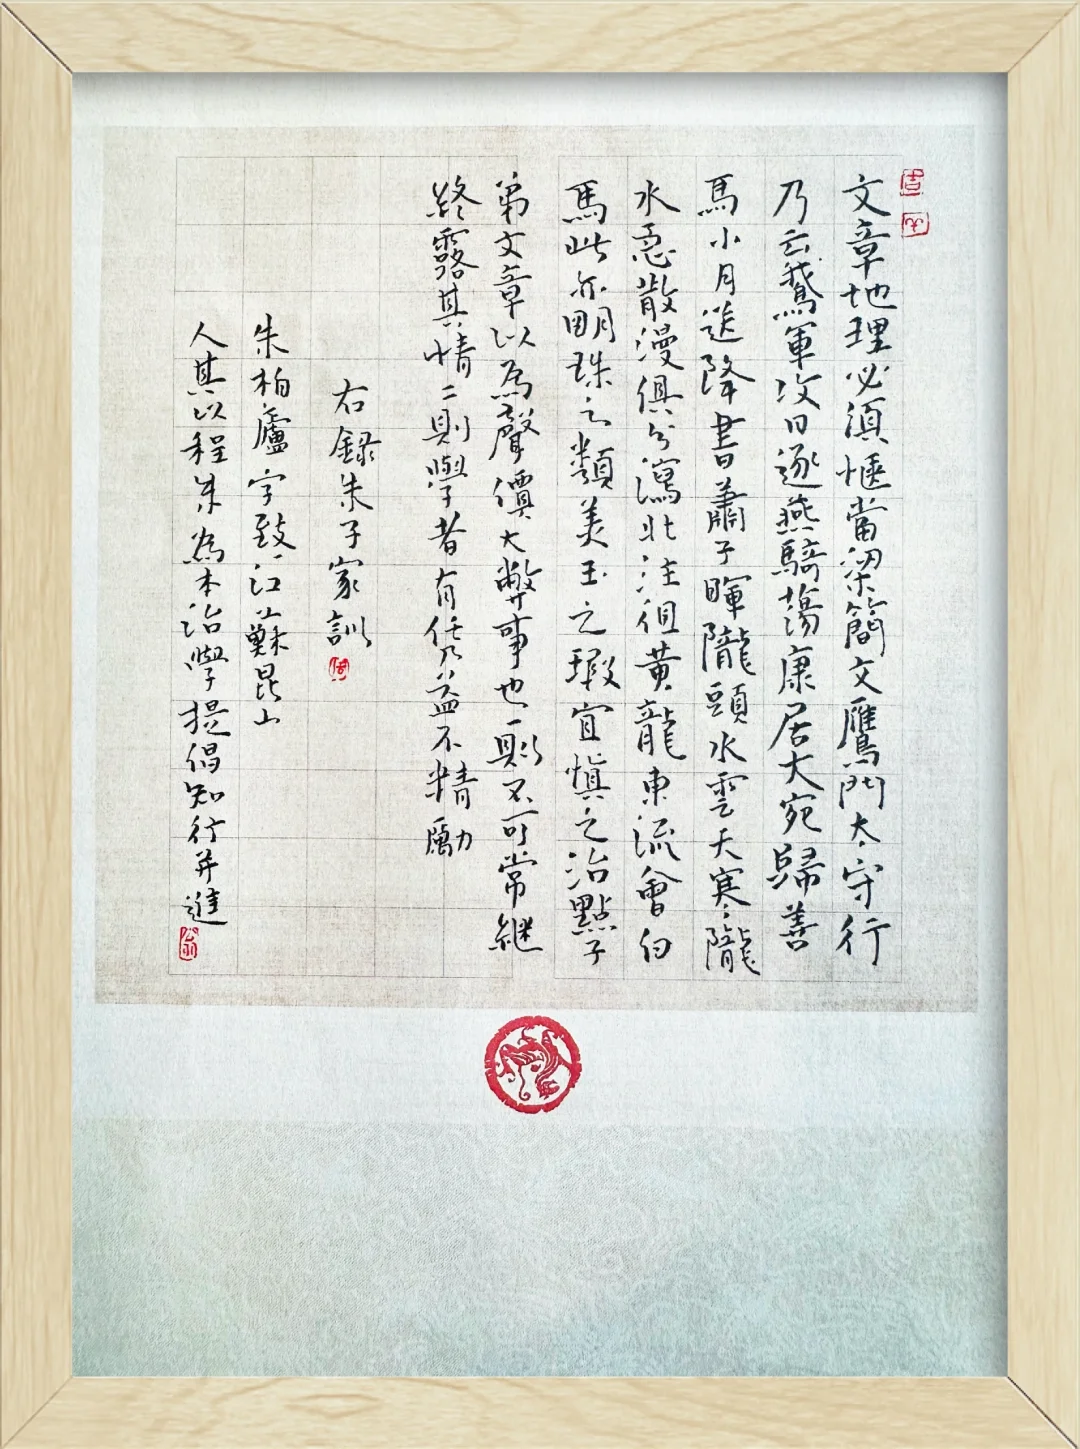 文章地理必須愜當梁簡文鴈門太守行
乃云鵞軍攻日逐燕騎蕩康居大宛歸善
馬小月送降書蕭子暉隴頭水雲天寒隴
水急散漫俱分瀉北注徂黃龍東流會白
馬此亦明珠之類美玉之瑕宜慎之治點子
弟文章以為聲價大弊事也一則不可常繼
終露其情二則學者有任乃益不精勵
右錄朱子家訓
朱柏廬字致一江蘇昆山
人其以程朱為本治學提倡知行并進